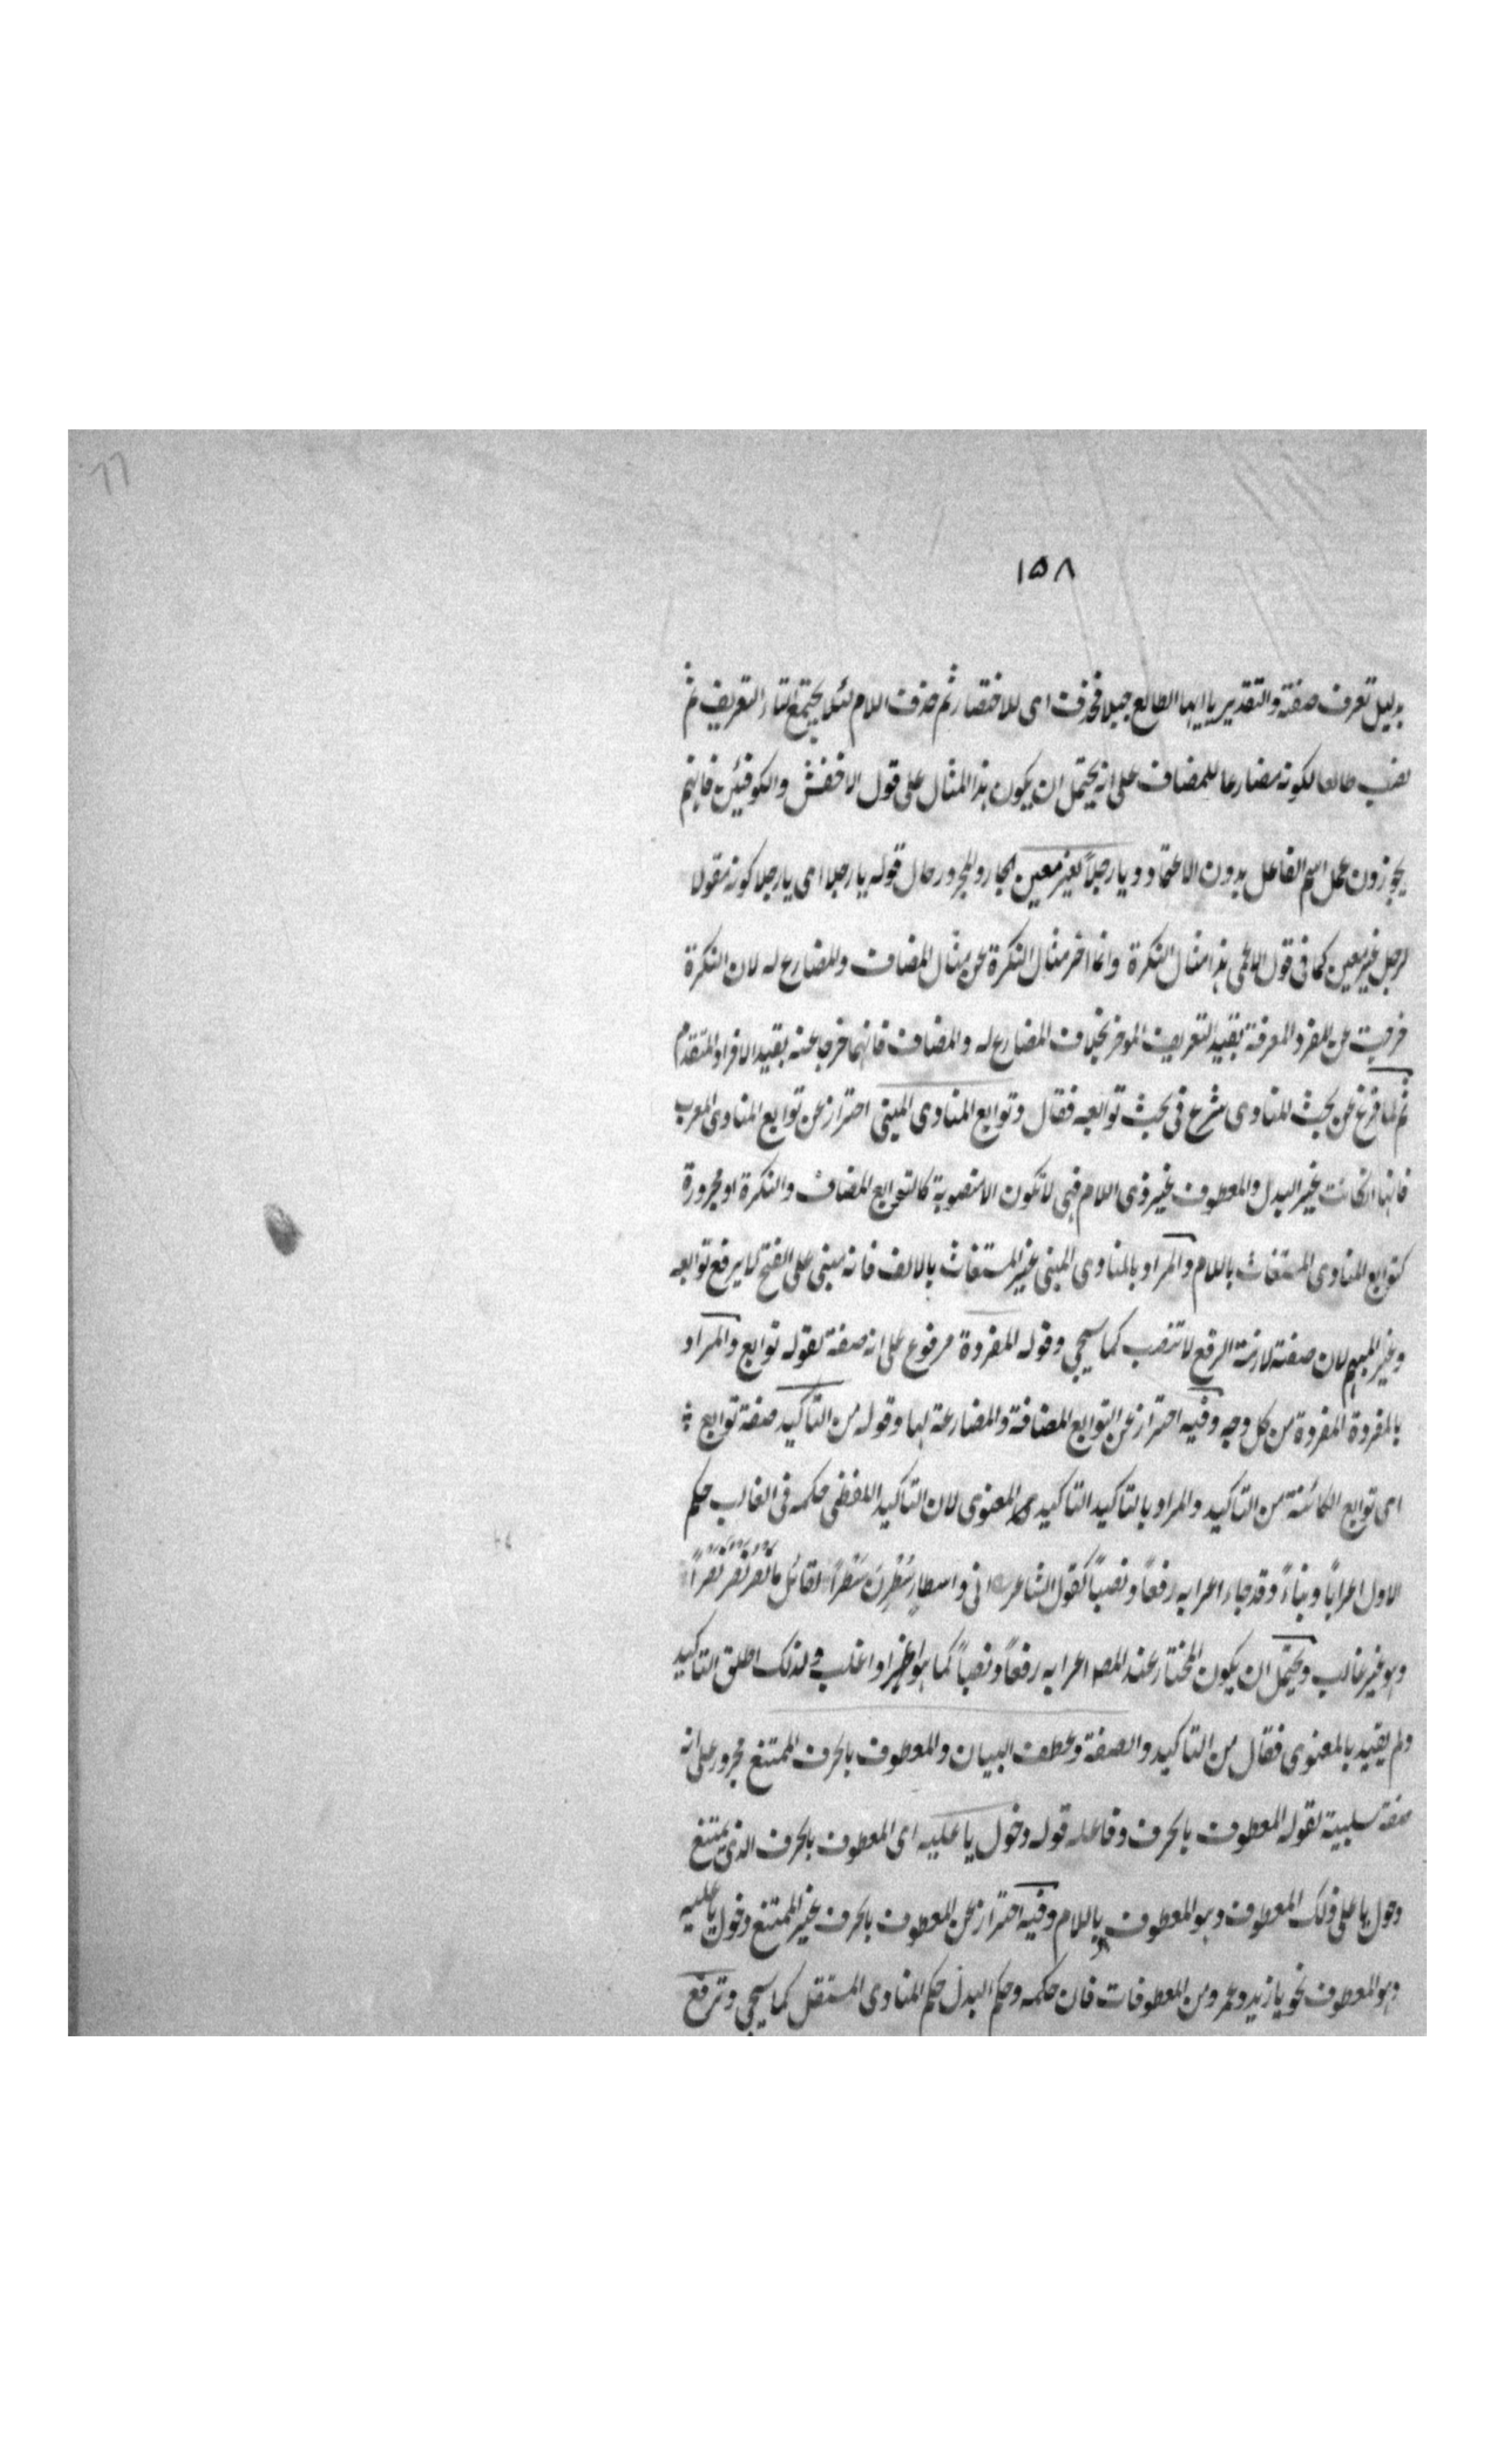 ١٥٨
بدليل تعرف صفته والتقدير يا ايها الطالع جبلا فحذف اى للاختصار ثم حذف اللام لئلا يجتمع التا التعريف ثم
نصب طالعا لكونه مضارعا للمضاف على انه يحتمل ان يكون هذا المثال على قول الاخفش والكوفيين فانهم
يجوزون عمل اسم الفاعل بدون الاعتماد ويا رجلاً لغير معين الجار والمجرور حال قوله يا رجلا اى يا رجلا كونه مقولا
لرجل غير معين كما فى قول الاعمى هذا مثال النكرة وانما اخر مثال النكرة عن مثال المضاف والمضارع له لان النكرة
خرجت عن المفرد المعرفة بقيد التعريف الموخر بخلاف المضارع له والمضاف فانهما خرجا عنه بقيد الافراد المتقدم
ثم لما فرغ عن بحث المنادى شرع فى بحث توابعه فقال وتوابع المنادى المبنى احتراز عن توابع المنادى المعرب
فانها انكانت غير البدل والمعطوف غير ذى اللام فهى لا تكون الا منصوبة كالتوابع المضاف والنكرة او مجرورة
كتوابع المنادى المستغاث باللام والمراد بالمنادى المبنى غير المستغاث بالالف فانه مبنى على الفتح لا يرفع توابعه
وغير المبهم لان صفته لازمة الرفع لا تنصب كما سيجى وقوله المفردة مرفوع على انه صفة لقوله توابع والمراد
بالمفردة المفردة من كل وجه وفيه احتراز عن التوابع المضافة والمضارعة لها وقوله من التاكيد صفة توابع
اى توابع الكائنة من التاكيد والمراد بالتاكيد التاكيد المعنوى لان التاكيد اللفظى حكمه فى الغالب حكم
الاول اعراباً وبناءً وقد جاء اعرابه رفعاً ونصباً كقول الشاعر انى واسطارٍ سُطِرنَ سَطراً لقائل يا نصر نصر نصراً
وهو غير غالب ويحتمل ان يكون المختار عند المصـ اعرابه رفعاً ونصباً كما هو اغلب فلذلك اطلق التاكيد
ولم يقيد بالمعنوى فقال من التاكيد والصفة وعطف البيان والمعطوف بالحرف الممتنع مجرور على انه
صفة سلبية لقوله المعطوف بالحرف وفاعله قوله دخول يا عليه اى المعطوف بالحرف الذى يمتنع
دخول يا على ذلك المعطوف وهو المعطوف باللام وفيه احتراز عن المعطوف بالحرف غير الممتنع دخول يا عليه
وهو المعطوف نحو يا زيد وعمرو من المعطوفات فان حكمه وحكم البدل حكم المنادى المستقل كما سيجى وترفع